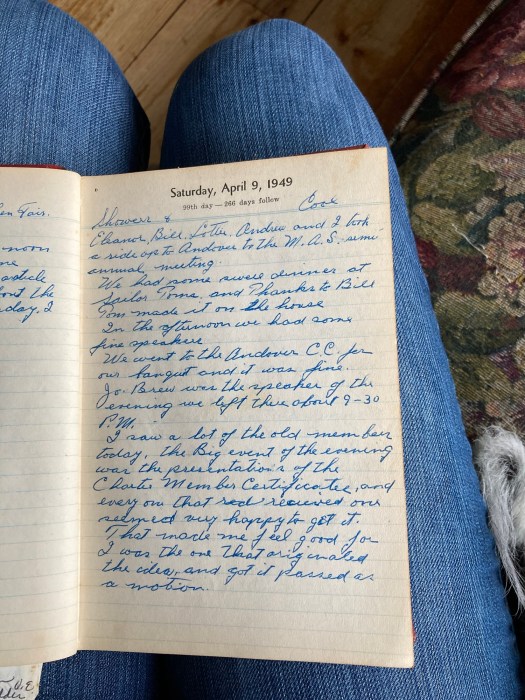 en Fair.
noon
ne
article
out the
day. I
Saturday, April 9, 1949
99th day—266 days follow
Showers & Cool
Eleanor, Bill, Lottie, Andrew and I took
a ride up to Andover to the M.A.S. semi
annual meeting.
We had some swere dinner at
Sailor Toms, and Thanks to Bill
Tom made it on the house
In the afternoon we had some
fine speakers
We went to the Andover C.C. for
our banquet and it was fine.
Jo. Brew was the speaker of the
evening we left there about 9-30
P.M.
I saw a lot of the old members
today, the Big event of the evening
was the presentations of the
Charter Member Certificates, and
every one that recieved one
seemed very happy to get it.
That made me feel good for
I was the one that originated
the idea, and got it passed as
a motion.